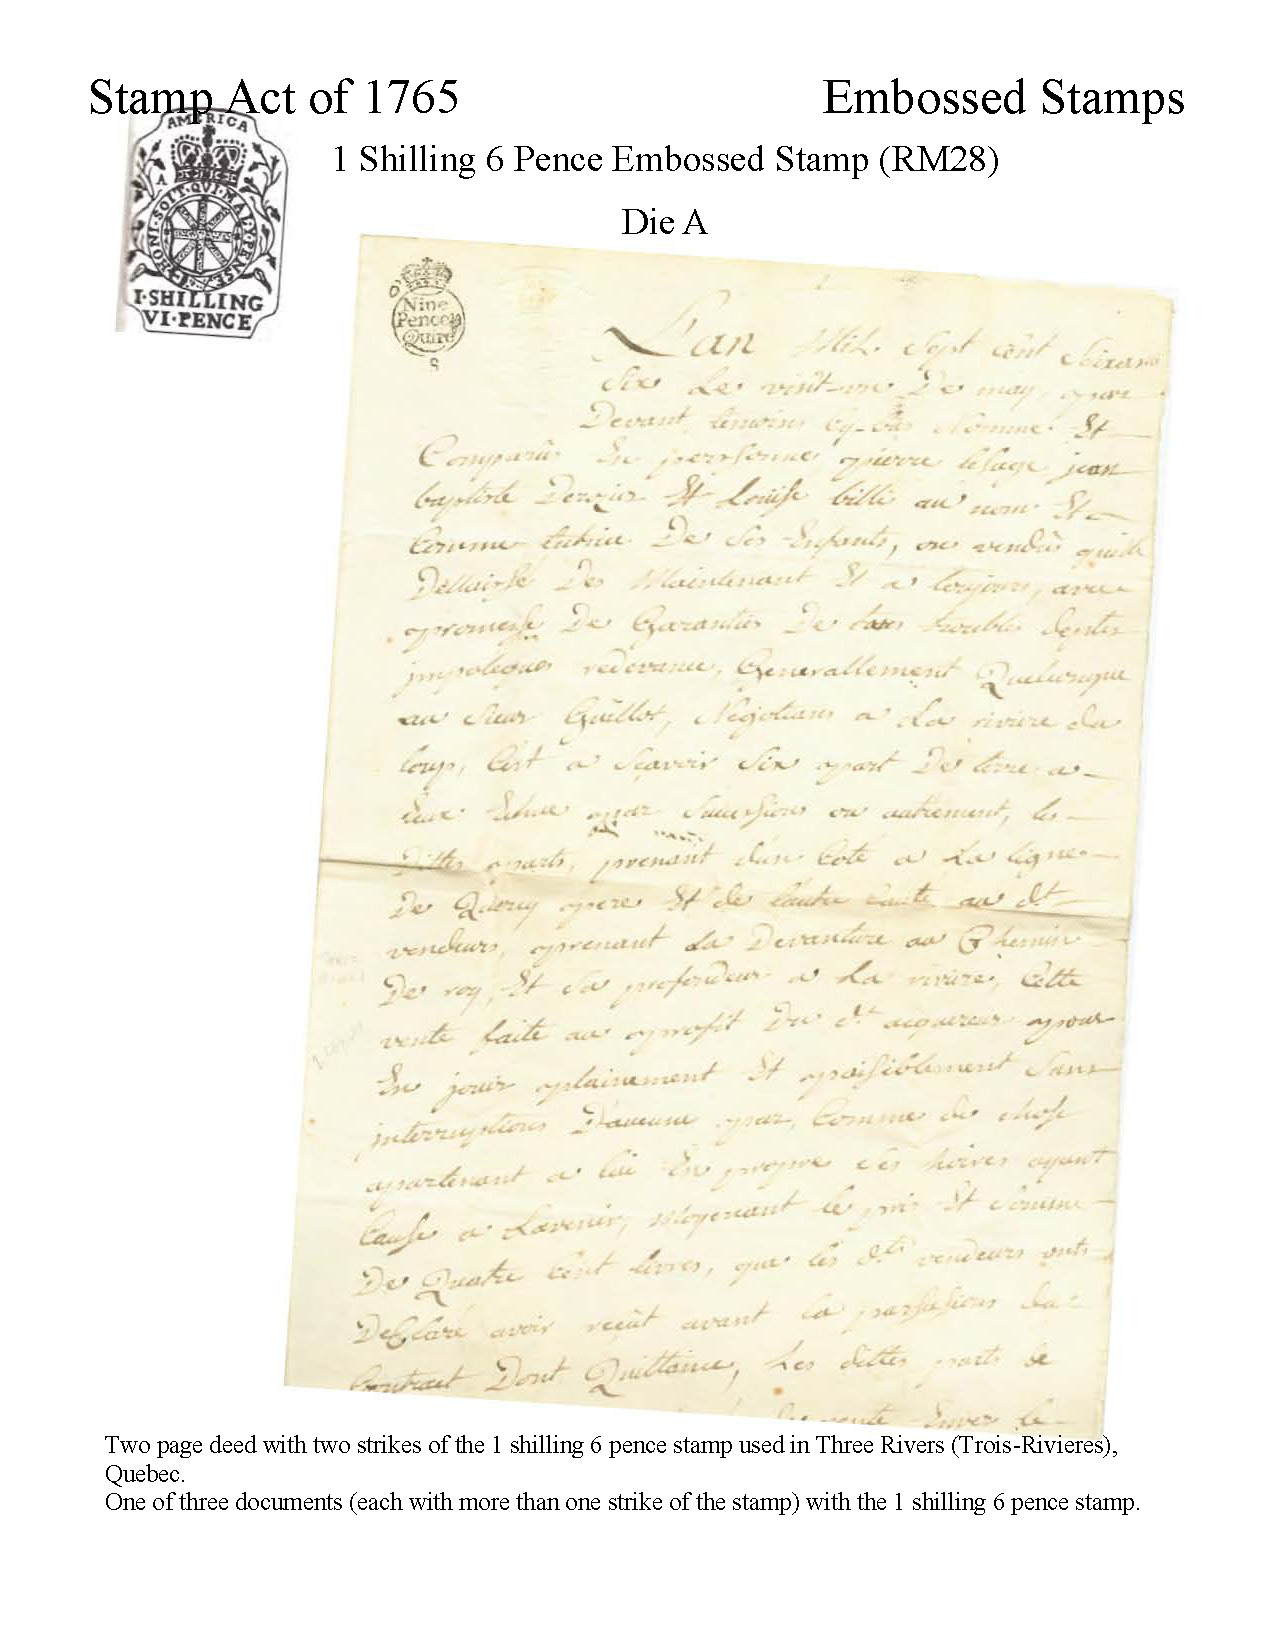 Stamp Act of 1765
Embossed Stamps
AMERICA
A
HONI·SOIT·QUI·MAL·Y·PENSE
I·SHILLING
VI·PENCE
1 Shilling 6 Pence Embossed Stamp (RM28)
Die A
Nine
Pence
Quire
8
L'an Mil Sept cent Soixan
Six Le vint-un De may, par
Devant, temoins Cy-bas Nomme Et
Comparûs En persone pierre lesage jean
baptiste Et Louise billi au nom Et
Comme tutrice De Ses Enfants, on vendûs quitte
Dellaissé Des Maintenant Et a toujours, avec
promesse De Garanties De tous troubles deptes
redevance, Generallement Quelconque
au Sieur Guillot, Negotians a La riviere du
loup, C'est a Sçavoir Six part De terre a
Eux Echue par Successions ou autrement, les
Dittes parts, prenant d'un Coté a La ligne
De pere Et de l'autre Coute au dt
vendeurs, prenant La Devanture au Chemin
De roy, Et Sa profondeur a La riviere, Cette
vente faite au profit Du dt acquereur pour
En jouir plainement Et paisiblement Sans
interruptions D'aucune par, Comme de chose
apartenant a lui En propre Ses hoires ayant
Cause a L'avenir, Moyenant le prix Et Somme
De Quatre Cent livres, que les dts vendeurs onts
DeClaré avoir reçût avant la passasions du
Contract Dont Quittance, Les dittes parts de
vente Enver le
Two page deed with two strikes of the 1 shilling 6 pence stamp used in Three Rivers (Trois-Rivieres),
Quebec.
One of three documents (each with more than one strike of the stamp) with the 1 shilling 6 pence stamp.